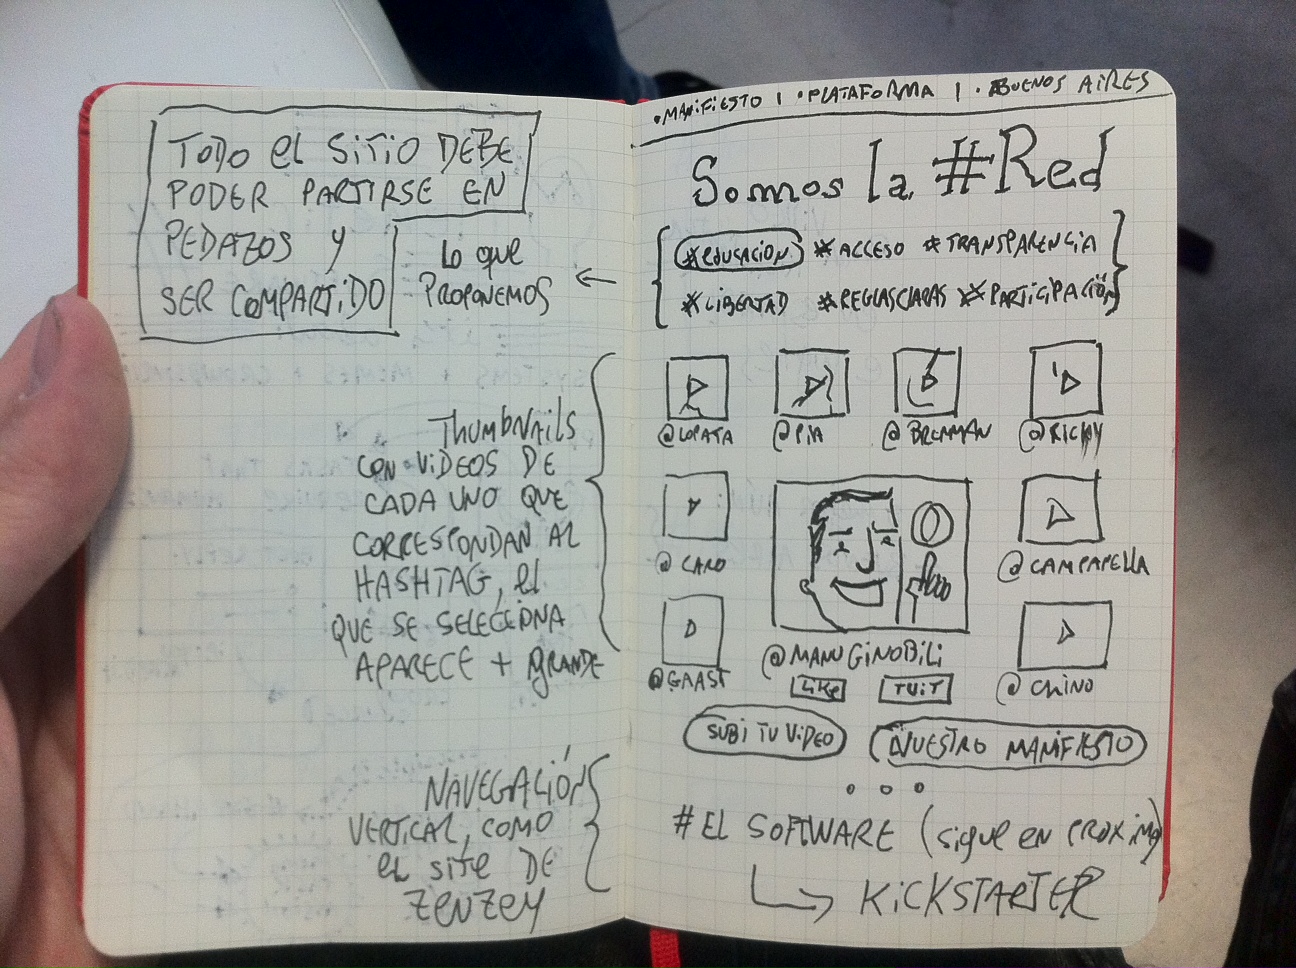 TODO El SiTiO DEBE
PODER PARTIRSE EN
PEDAZOS Y
SER COMPARTIDO
lo que
PROPONEMOS
ThUMbNAils
CON ViDEOS DE
CADA UNO QUE
CORRESPONDAN AL
HASHTAG, el
QUE SE SELECCIONA
APARECE + GRANDE
NAVEGACIÓN
VERTICAL, COMO
el site DE
ZENZEY
•MANiFiESTO | •PLATAFORMA | •BUENOS AiRES
Somos la #Red
#EDUCACION #ACCESO #TRANSPARENCiA
#LiBERTAD #REGLASCLARAS #PARTiCiPACiÓN
@LOPATA @PiA @BRENMAN @RICHY
@CARO @CAMPAPELLA
@GAAST @MANUGiNOBiLi @CHiNO
Like TUiT
SUBI TU ViDEO NUESTRO MANiFiESTO
#EL SOFTWARE (sigue en PROXiMA)
KiCKSTARTER